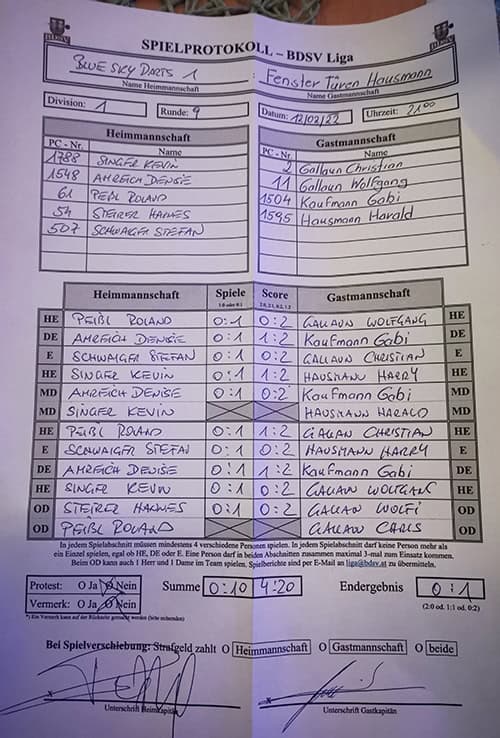 SPIELPROTOKOLL – BDSV Liga
BLUE SKY DARTS 1 : Fenster Türen Hausmann
Name Heimmannschaft Name Gastmannschaft
Division: 1 Runde: 9 Datum: 12/02/22 Uhrzeit: 21⁰⁰
Heimmannschaft Gastmannschaft
PC - Nr. Name PC - Nr. Name
1788 SINGER KEVIN 2 Gallaun Christian
1548 AMREICH DENISE 11 Gallaun Wolfgang
61 PEIßL ROLAND 1504 Kaufmann Gabi
54 STEIRER HANNES 1595 Hausmann Harald
507 SCHWAIGER STEFAN
Heimmannschaft Spiele Score Gastmannschaft
1:0 oder 0:1 2:0, 2:1, 0:2, 1:2
HE PEIßL ROLAND 0:1 0:2 GALLAUN WOLFGANG HE
DE AMREICH DENISE 0:1 1:2 Kaufmann Gabi DE
E SCHWAIGER STEFAN 0:1 0:2 GALLAUN CHRISTIAN E
HE SINGER KEVIN 0:1 1:2 HAUSMANN HARRY HE
MD AMREICH DENISE 0:1 0:2 Kaufmann Gabi MD
MD SINGER KEVIN HAUSMANN HARALD MD
HE PEIßL ROLAND 0:1 1:2 GALLAUN CHRISTIAN HE
E SCHWAIGER STEFAN 0:1 0:2 HAUSMANN HARRY E
DE AMREICH DENISE 0:1 1:2 Kaufmann Gabi DE
HE SINGER KEVIN 0:1 0:2 GALLAUN WOLFGANG HE
OD STEIRER HANNES 0:1 0:2 GALLAUN WOLFI OD
OD PEIßL ROLAND GALLAUN CARLS OD
In jedem Spielabschnitt müssen mindestens 4 verschiedene Personen spielen. In jedem Spielabschnitt darf keine Person mehr als
ein Einzel spielen, egal ob HE, DE oder E. Eine Person darf in beiden Abschnitten zusammen maximal 3-mal zum Einsatz kommen.
Beim OD kann auch 1 Herr und 1 Dame im Team spielen. Spielberichte sind per E-Mail an liga@bdsv.at zu übermitteln.
Protest: O Ja O Nein Summe 0:10 4:20 Endergebnis 0:1
Vermerk: O Ja O Nein (2:0 od. 1:1 od. 0:2)
*) Ein Vermerk kann auf der Rückseite gemacht werden (bitte ankreuzen)
Bei Spielverschiebung: Strafgeld zahlt O Heimmannschaft O Gastmannschaft O beide
x x
Unterschrift Heimkapitän Unterschrift Gastkapitän